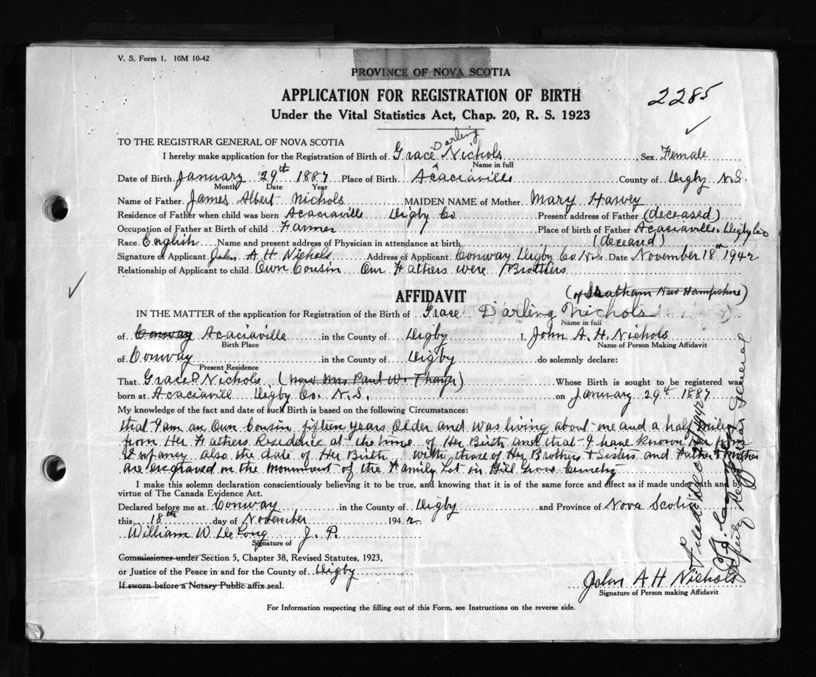 V. S. Form 1. 10M 10-42
PROVINCE OF NOVA SCOTIA
APPLICATION FOR REGISTRATION OF BIRTH
2285
Under the Vital Statistics Act, Chap. 20, R. S. 1923
TO THE REGISTRAR GENERAL OF NOVA SCOTIA
Darling
I hereby make application for the Registration of Birth of Grace Nichols Sex Female
Name in full
Date of Birth January 29th 1887 Place of Birth Acaciaville County of Digby N.S.
Month Date Year
Name of Father James Albert Nichols MAIDEN NAME of Mother Mary Harvey
Residence of Father when child was born Acaciaville Digby Co Present address of Father (deceased)
Occupation of Father at Birth of child Farmer Place of birth of Father Acaciaville Digby Co
Race English Name and present address of Physician in attendance at birth (deceased)
Signature of Applicant John A H Nichols Address of Applicant Conway Digby Co N.S. Date November 18th 1942
Relationship of Applicant to child Own Cousin Our Fathers were Brothers
AFFIDAVIT
(of Chatham New Hampshire)
IN THE MATTER of the application for Registration of the Birth of Grace Darling Nichols
Name in full
of Conway Acaciaville in the County of Digby I, John A. H. Nichols
Birth Place Name of Person Making Affidavit
of Conway in the County of Digby do solemnly declare:
Present Residence
That Grace D Nichols (now Mrs Paul W. Thayer) Whose Birth is sought to be registered was
born at Acaciavill Digby Co. N.S. on January 29th 1887
My knowledge of the fact and date of such Birth is based on the following Circumstances:
that I am an Own Cousin fifteen years Older and was living about one and a half miles
from Her Fathers Residence at the time of Her Birth and that I have known Her from
Infancy also the date of Her Birth with those of Her Brothers & Sisters and Father & Mother
are engraved on the monument of the Family Lot in Hill Grove Cemetry
I make this solemn declaration conscientiously believing it to be true, and knowing that it is of the same force and effect as if made under oath and by
virtue of The Canada Evidence Act.
Declared before me at Conway in the County of Digby and Province of Nova Scotia
this 18th day of November 1942
William W DeLong J. P.
Signature of
Commissioner under Section 5, Chapter 38, Revised Statutes, 1923,
or Justice of the Peace in and for the County of Digby
If sworn before a Notary Public affix seal.
John A H Nichols
Signature of Person making Affidavit
For Information respecting the filling out of this Form, see Instructions on the reverse side.
Deputy Registrar General